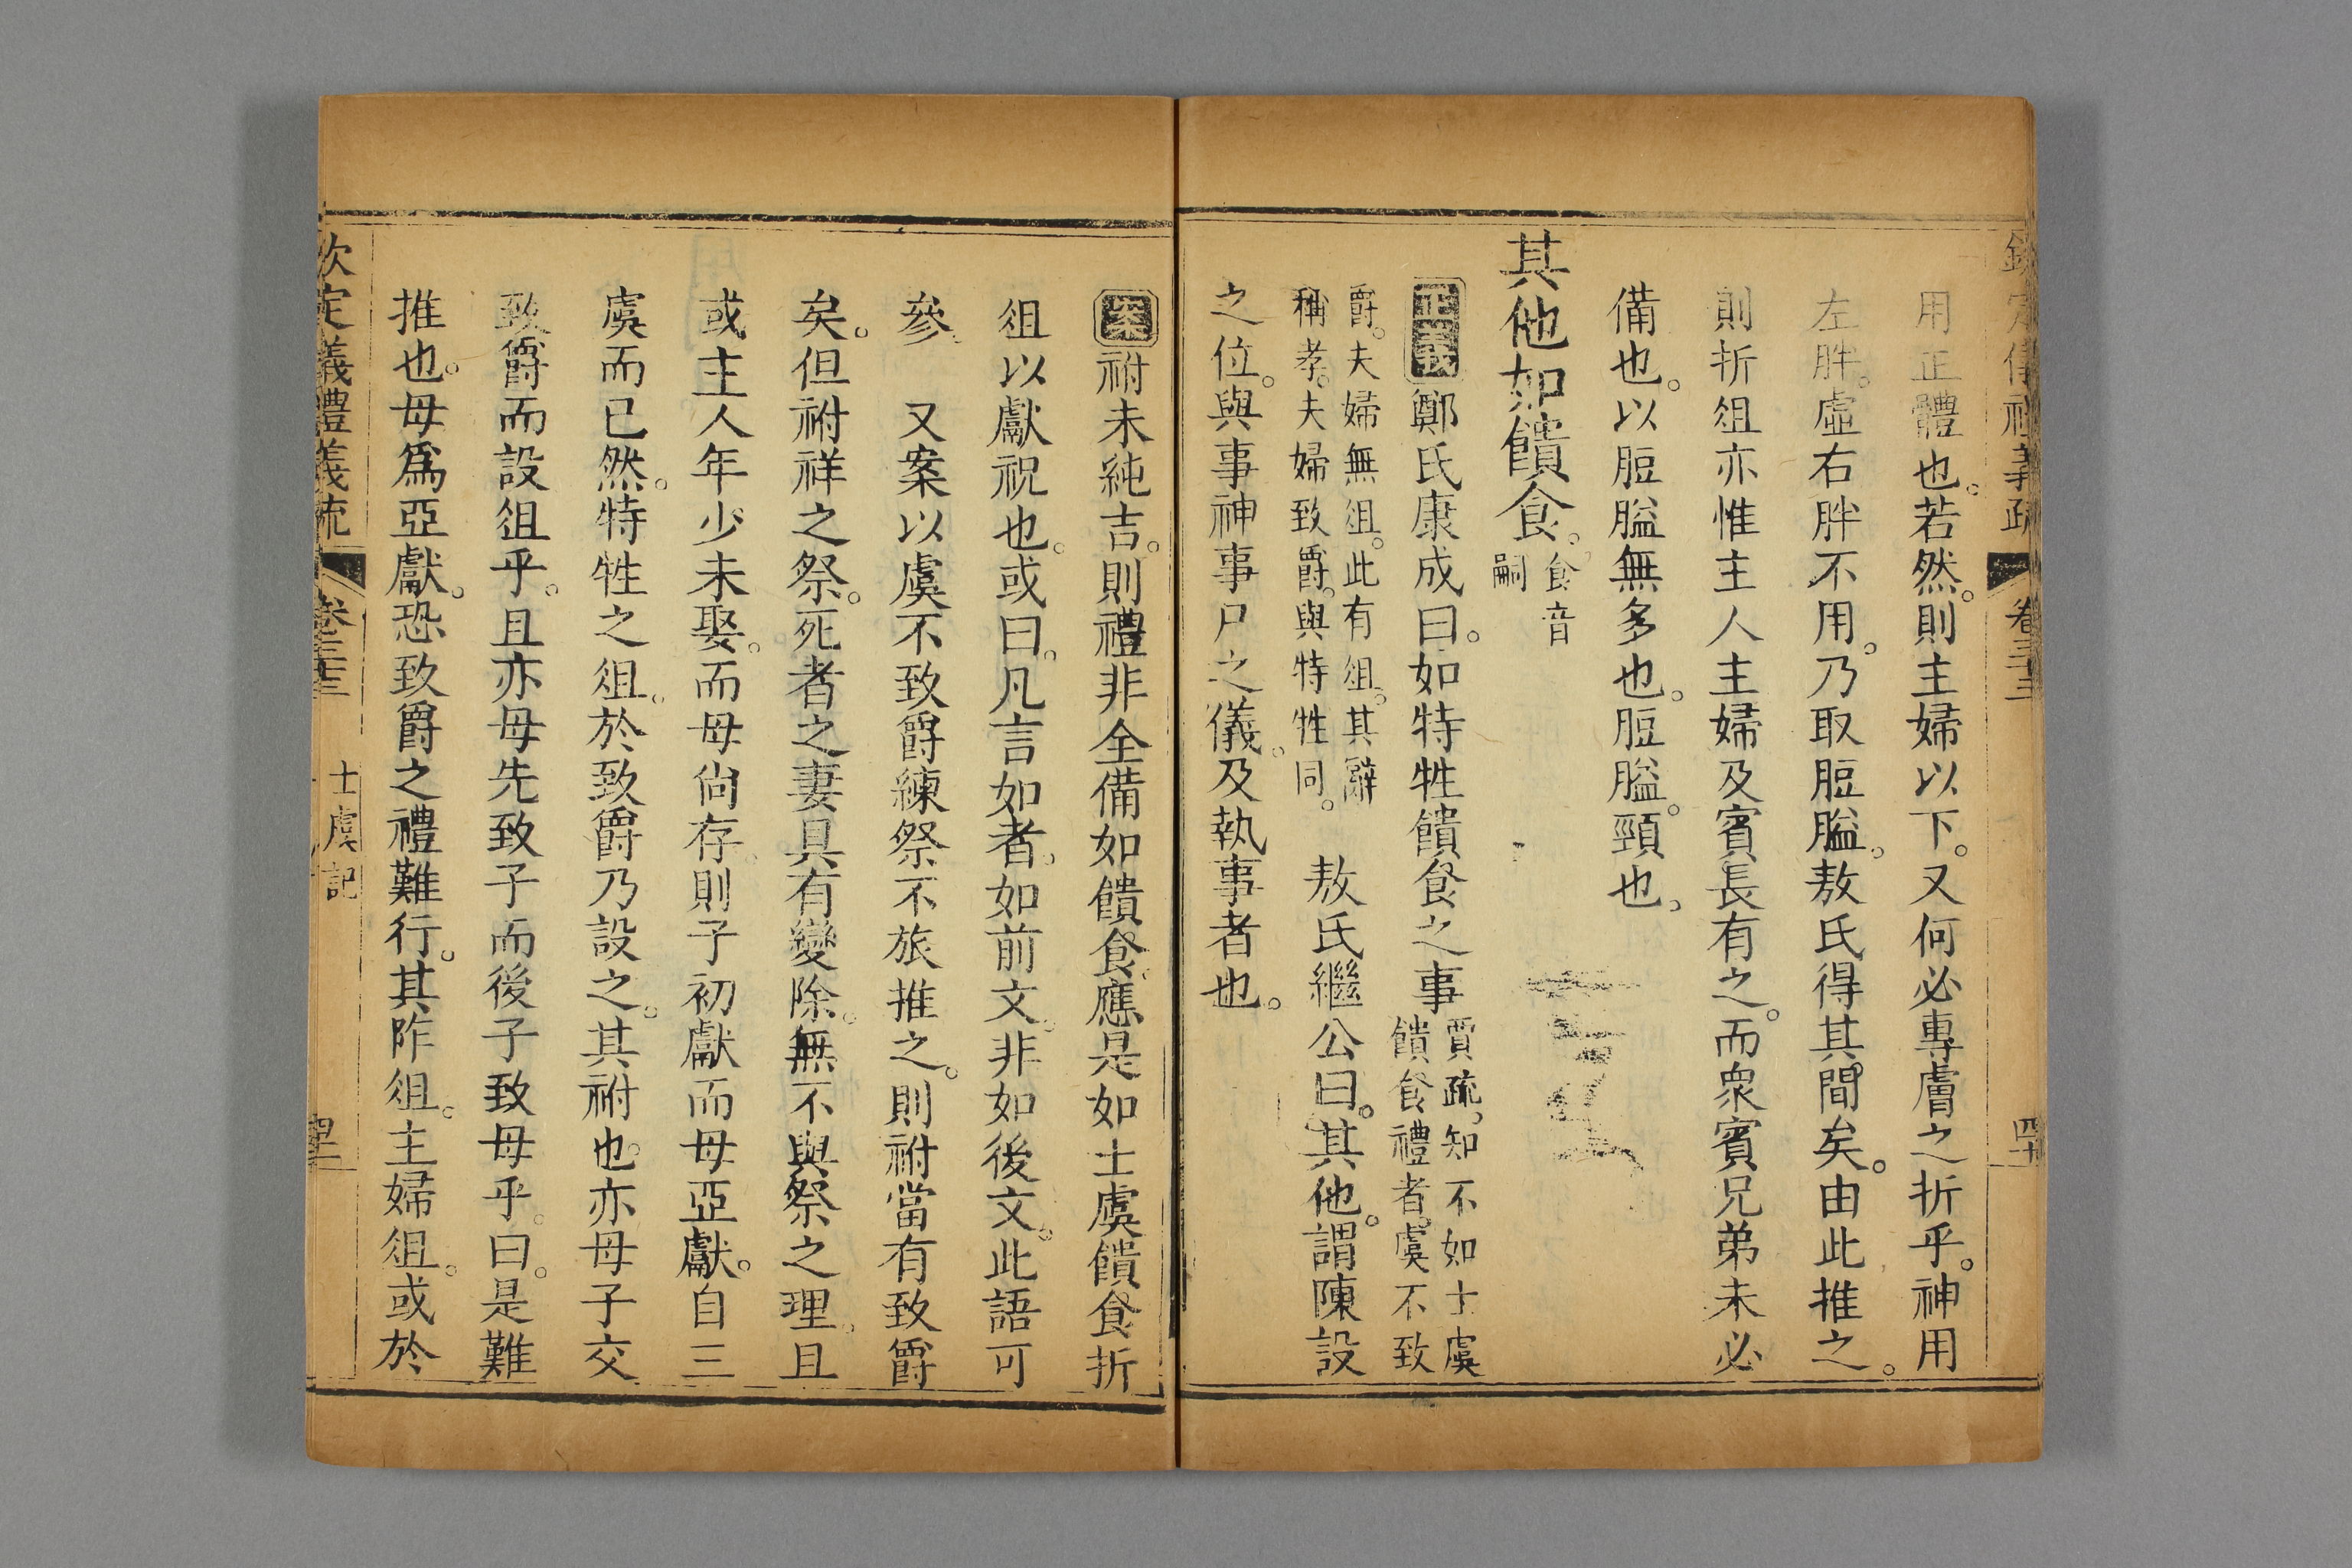 欽定儀禮義疏 卷三十三 四十
用正體也。若然。則主婦以下。又何必專膚之折乎。神用
左胖。虛右胖不用。乃取脰膉。敖氏得其間矣。由此推之。
則折俎亦惟主人主婦及賓長有之。而衆賓兄弟未必
備也。以脰膉無多也。脰膉。頸也。
其他如饋食。食音嗣
正義鄭氏康成曰。如特牲饋食之事賈疏。知不如士虞饋食禮者。虞不致
爵。夫婦無俎。此有俎。其辭稱孝。夫婦致爵。與特牲同。 敖氏繼公曰。其他。謂陳設
之位。與事神事尸之儀。及執事者也。
案祔未純吉。則禮非全備如饋食。應是如士虞饋食折
俎以獻祝也。或曰。凡言如者。如前文。非如後文。此語可
參。 又案以虞不致爵練祭不旅推之。則祔當有致爵
矣。但祔祥之祭。死者之妻具有變除。無不與祭之理。且
或主人年少未娶。而母尙存。則子初獻而母亞獻。自三
虞而已然。特牲之俎。於致爵乃設之。其祔也。亦母子交
致爵而設俎乎。且亦母先致子而後子致母乎。曰。是難
推也。母爲亞獻。恐致爵之禮難行。其阼俎。主婦俎。或於
欽定儀禮義疏 卷三十三 士虞記